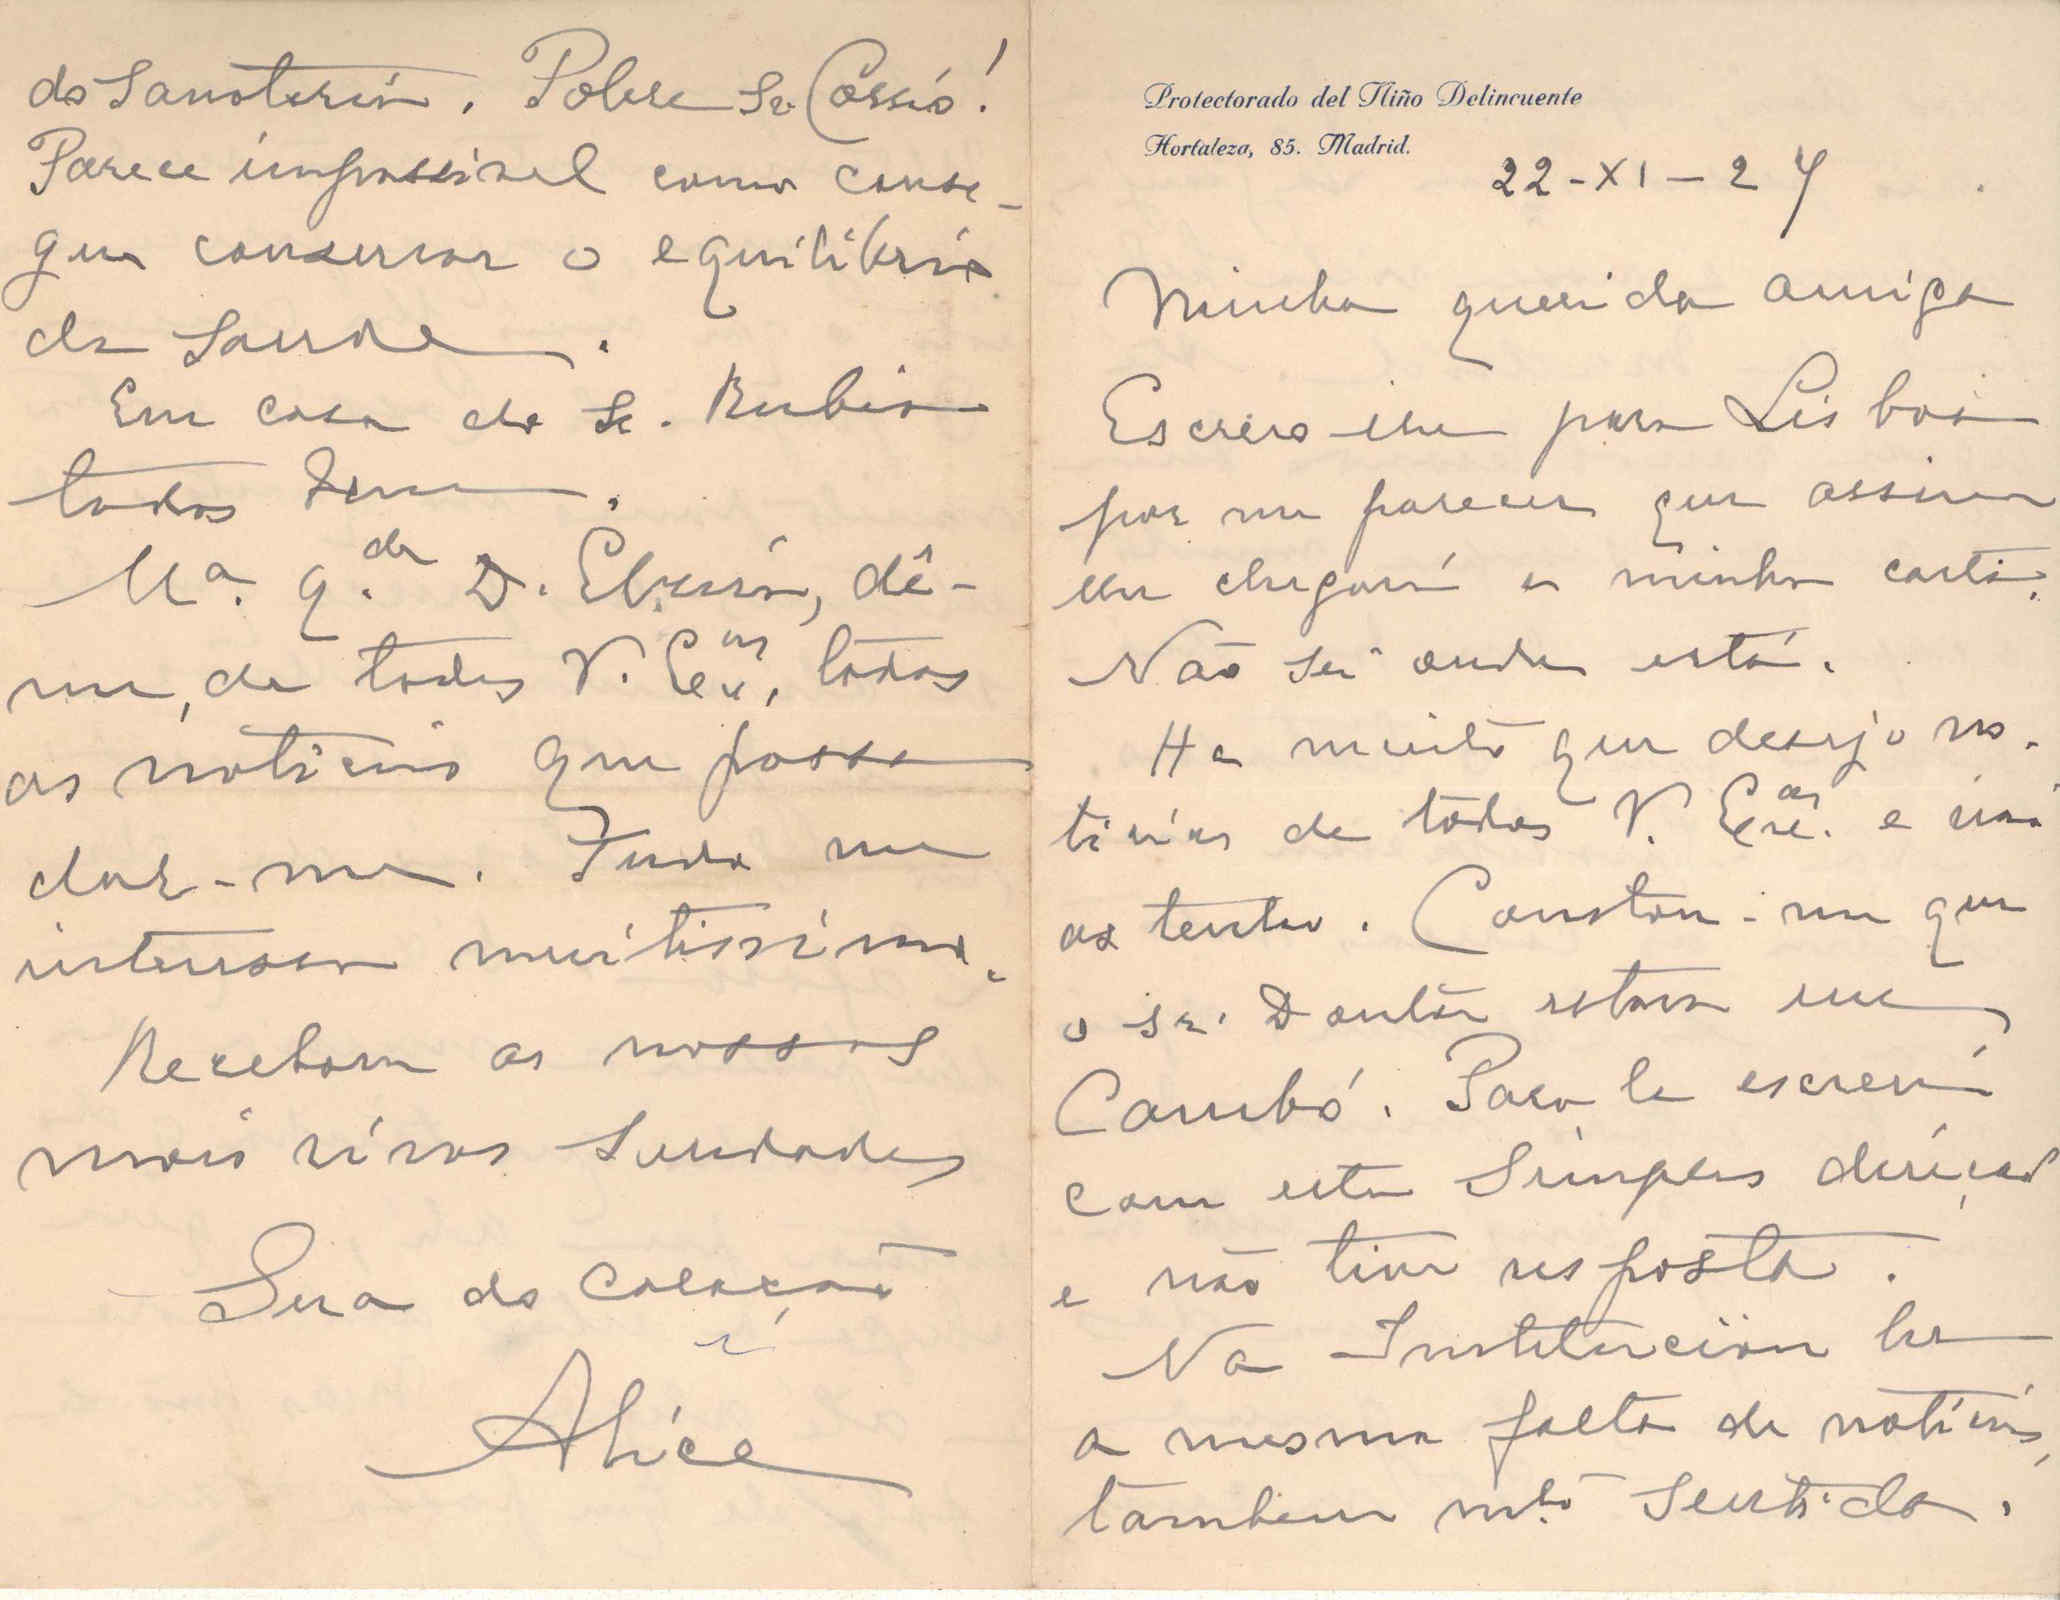 Protectorado del Niño Delincuente
Hortaleza, 85. Madrid.
22-XI-27
Minha querida amiga
Escrevo-lhe para Lisboa
por me parecer que assim
lhe chegará a minha carta.
Não sei onde está.
Ha muito que desejo no-
ticias de todos V. Ex.as e não
as tenho. Constou-me que
o Sr. Doutor estava em
Cambó. Para la escrevi
com esta simples direcção
e não tive resposta.
Na Institucion ha
a mesma falta de noticias,
tambem m.to sentida.
do Sanatorio. Pobre Sr. Cossio!
Parece impossivel como conse-
gue conservar o equilibrio
da saude.
Em casa do Sr. Rubio
todos bem.
M.a q.da D. Elzira, dê-
me, de todos V. Ex.as, todas
as noticias que possa
dar-me. Tudo me
interessa muitissimo.
Recebam as nossas
mais vivas saudades
Sua do coração
Alice